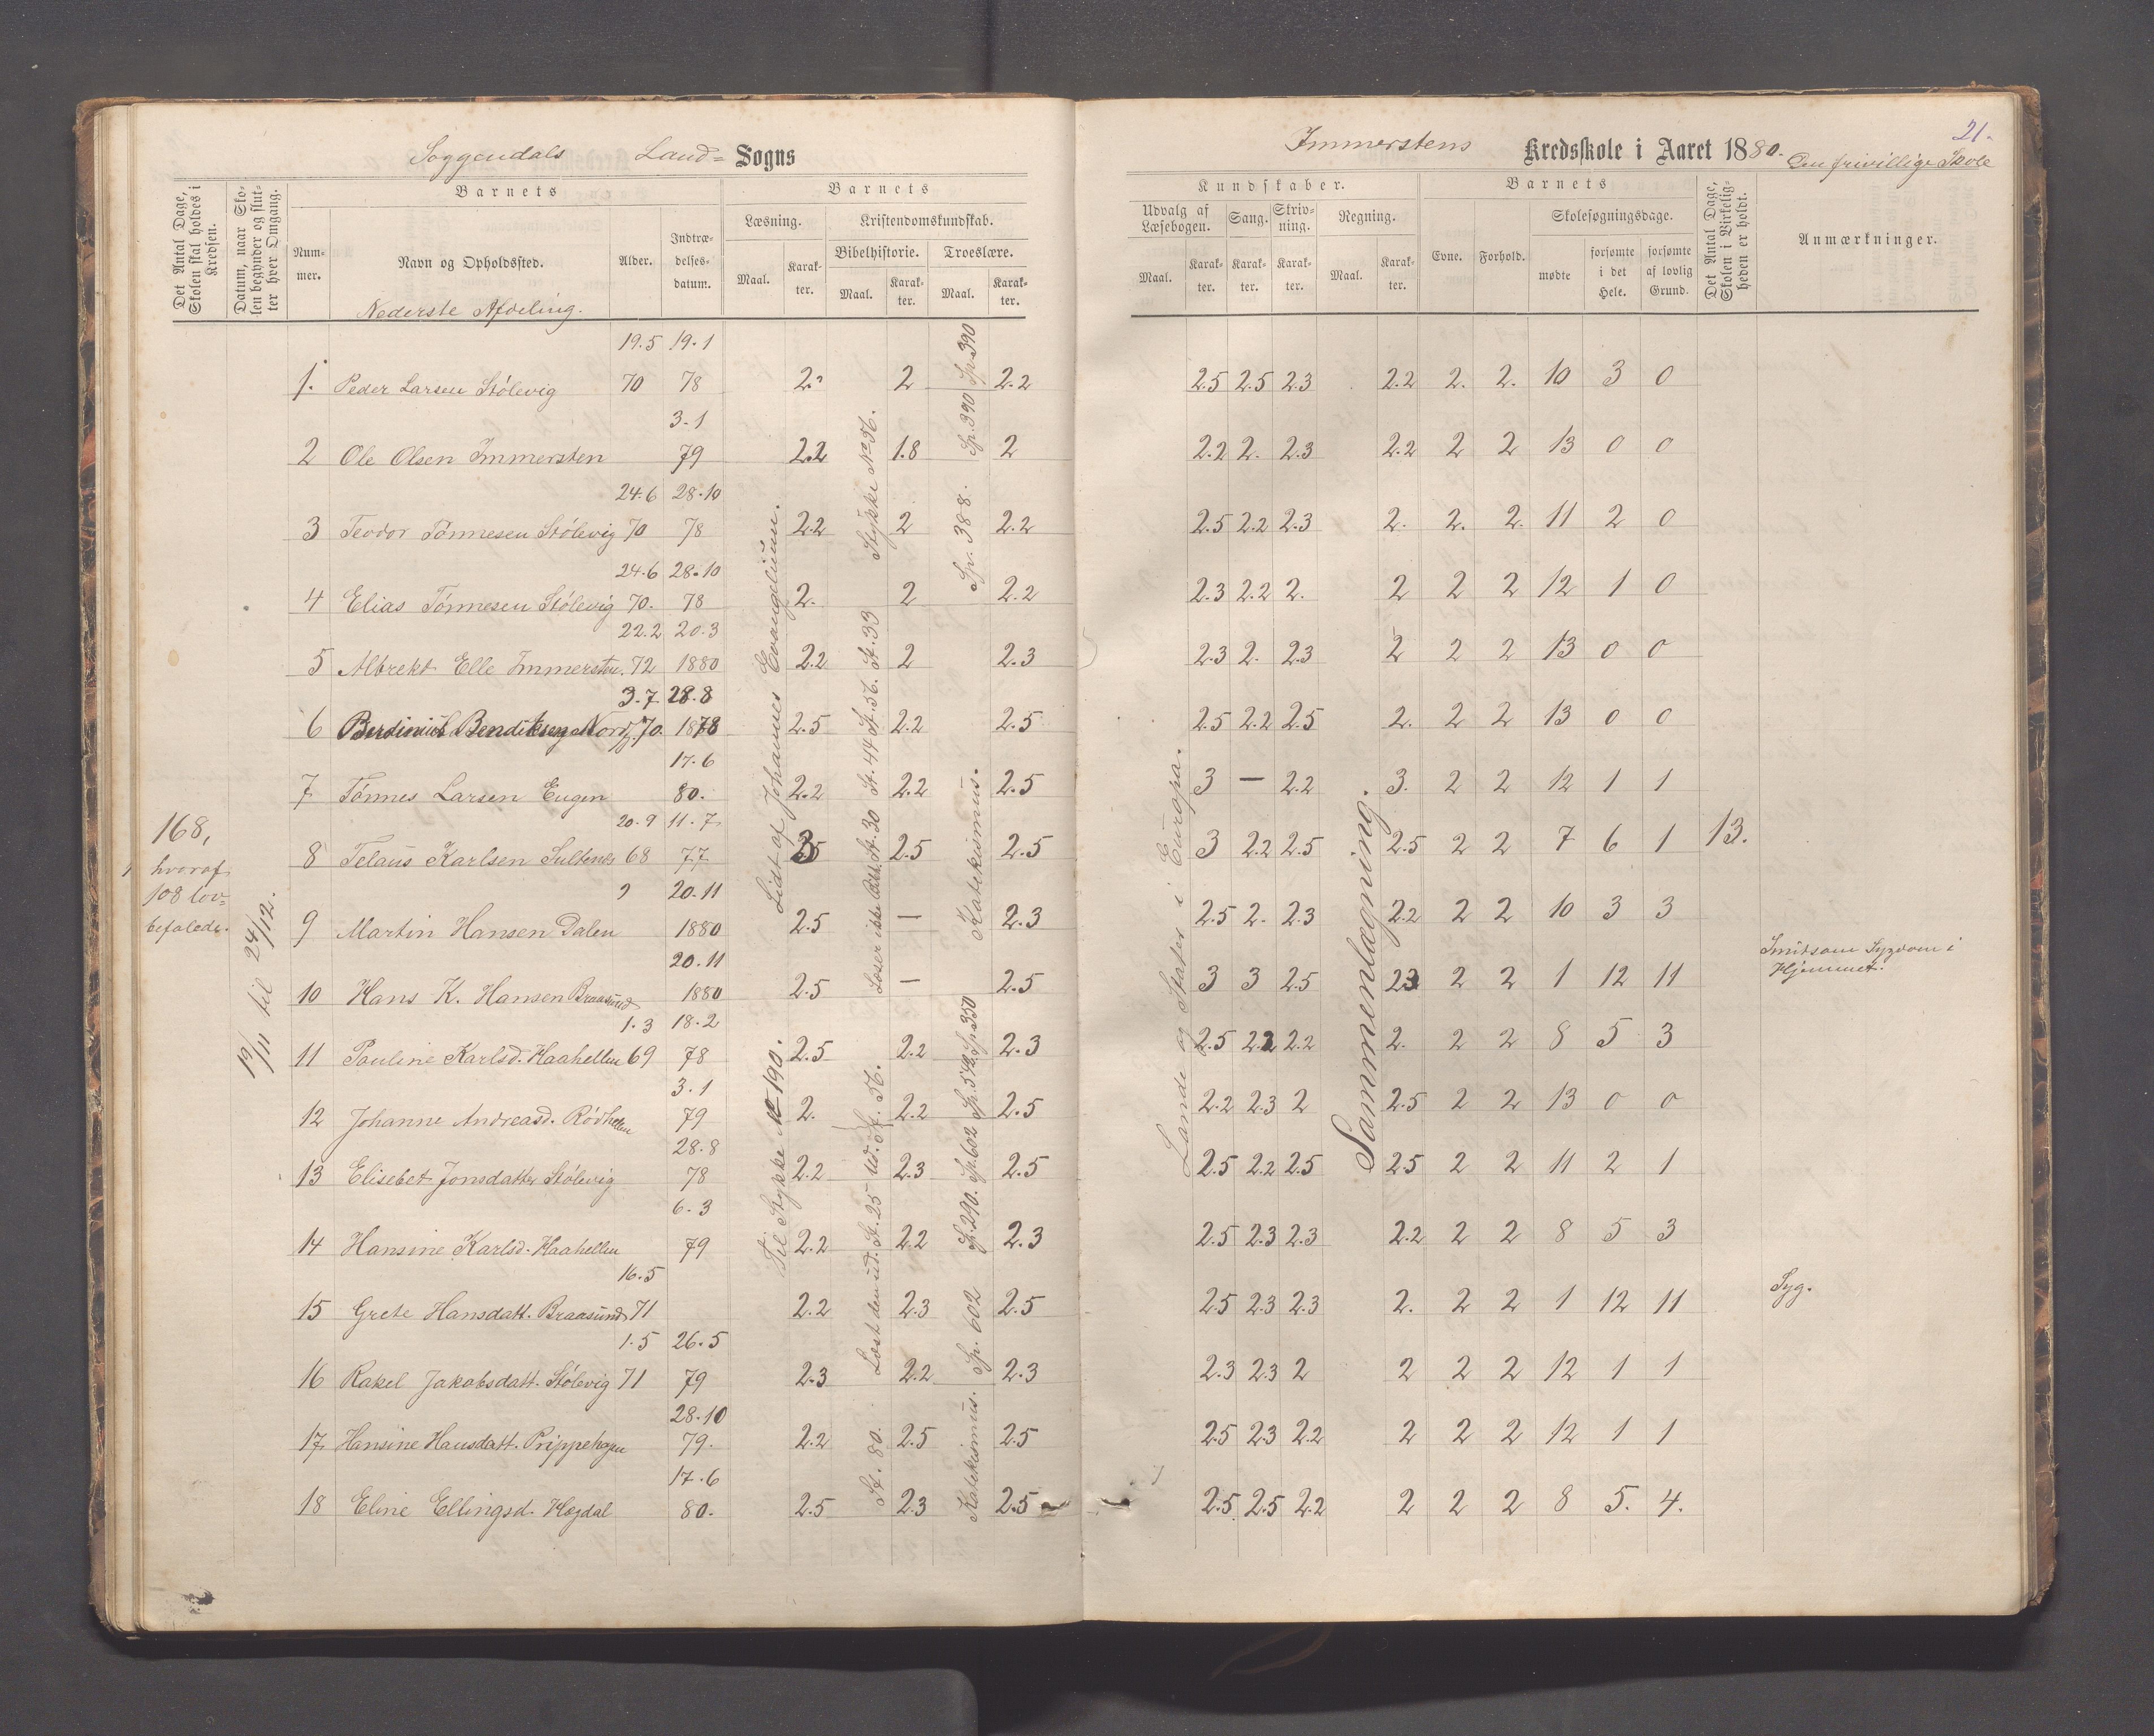 Soggendals Land= Sogns
Det Antal Dage, Skolen skal holdes i Kredsen.
Datum, naar Skolen begynder og slutter hver Omgang.
Barnets
Nummer.
Navn og Opholdssted.
Alder.
Indtrædelsesdatum.
Barnets
Læsning.
Maal.
Karakter.
Kristendomskundskab.
Bibelhistorie.
Maal.
Karakter.
Troeslære.
Maal.
Karakter.
Nederste Afdeling.
19.5 19.1
1. Peder Larsen Stölevig 70 78 2. 2 2.2
3.1
2 Ole Olsen Immersten 79 2.2 1.8 2
24.6 28.10
3 Teodor Tönnesen Stölevig 70 78 2.2 2 2.2
24.6 28.10
4 Elias Tönnesen Stölevig 70. 78 2. 2 2.2
22.2 20.3
5 Albrekt Elle Immersten. 72 1880 2.2 2 2.3
3.7 28.8
6 Bendiksen Nordf. 70 1878 2.5 2.2 2.5
17.6
7 Tönnes Larsen Eugen 80. 2.2 2.2 2.5
20.9 11.7
8 Telaus Karlsen Sultenes 68 77 2.5 2.5
20.11
9 Martin Hansen Dalen 1880 2.5 — 2.3
20.11
10 Hans K. Hansen Braasund 1880 2.5 — 2.5
1.3 18.2
11 Pauline Karlsd. Haahellen 69 78 2.5 2.2 2.3
3.1
12 Johanne Andreasd. Rödhellen 79 2. 2.2 2.5
28.8
13 Elisebet Jonsdatter Stölevig 78 2.2 2.3 2.5
6.3
14 Hansine Karlsd. Haahellen 79 2.2 2.2 2.3
16.5
15 Grete Hansdatt. Braasund 71 2.2 2.3 2.5
1.5 26.5
16 Rakel Jakobsdatt. Stölevig 71 79 2.3 2.2 2.3
28.10
17 Hansine Hansdatt. Prippehagen 79. 2.2 2.5 2.5
17.6
18 Eline Ellingsd. Hogdal 80. 2.5 2.3 2.5
168,
hvoraf
108 lov=
befalede.
19/11 til 24/12.
Lidt af Johannes Evangelium.
Til Stykke No 190.
Stykke No 56.
St. 44 St. 56. St. 33
Læser ikke Bibh. St. 30
Læst den ud. St. 25 Ud. St. 56.
St. 80.
Sp. 390 Sp. 390
Sp. 388.
Katekismus.
Sp. 290. Sp. 602 Sp. 542. Sp. 350
Katekismus. Sp. 602
Immerstens Kredsskole i Aaret 1880. Den frivillige Skole
21.
Kundskaber.
Udvalg af Læsebogen.
Maal.
Karakter.
Sang.
Karakter.
Skrivning.
Karakter.
Regning.
Maal.
Karakter.
Barnets
Evne.
Forhold.
Skolesøgningsdage.
mødte
forsømte i det Hele.
forsømte af lovlig Grund.
Det Antal Dage, Skolen i Virkeligheden er holdt.
Anmærkninger.
2.5 2.5 2.3 2.2 2. 2. 10 3 0
2.2 2. 2.3 2.2 2 2 13 0 0
2.5 2.2 2.3 2. 2. 2. 11 2 0
2.3 2.2 2. 2 2 2 12 1 0
2.3 2. 2.3 2 2 2 13 0 0
2.5 2.2 2.5 2. 2 2 13 0 0
3 — 2.2 3. 2 2 12 1 1
3 2.2 2.5 2.5 2 2 7 6 1 13.
2.5 2. 2.3 2.2 2 2 10 3 3
3 3 2.5 2.3 2 2 1 12 11 Smitsom Sygdom i Hjemmet.
2.5 2.2 2.2 2. 2 2 8 5 3
2.2 2.3 2 2.5 2 2 13 0 0
2.5 2.2 2.5 2.5 2 2 11 2 1
2.5 2.3 2.3 2.2 2 2 8 5 3
2.5 2.3 2.3 2. 2 2 1 12 11 Syg.
2.3 2.3 2 2 2 2 12 1 1
2.5 2.3 2.2 2 2 2 12 1 1
2.5 2.5 2.2 2 2 2 8 5. 4.
Lande og Stater i Europa.
Sammenlægning.